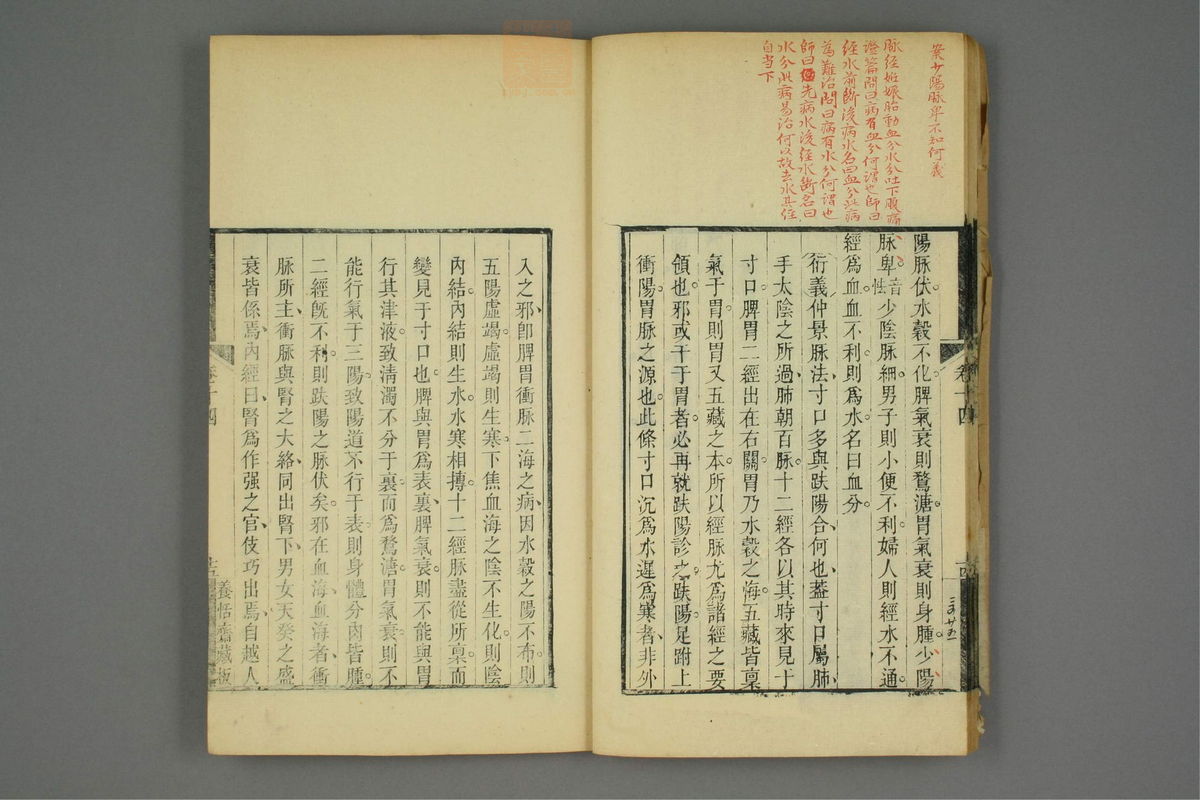 案少陽脉卑不知何義
脉經姙娠胎動血分水分吐下腹痛
證篇問曰病有血分何謂也師曰
經水前斷後病水名曰血分此病
為難治問曰病有水分何謂也
師曰先病水後經水斷名曰
水分此病易治何以故去水其經
自当下
陽脉伏水穀不化脾氣衰則鶩溏胃氣衰則身腫少陽
脉卑音怯少陰脉細男子則小便不利婦人則經水不通
經爲血血不利則爲水名曰血分
衍義仲景脉法寸口多與趺陽合何也葢寸口屬肺
手太陰之所過肺朝百脉十二經各以其時來見于
寸口脾胃二經出在右關胃乃水穀之海五藏皆稟
氣于胃則胃又五藏之本所以經脉尤爲諸經之要
領也邪或干于胃者必再就趺陽診之趺陽足跗上
衝陽胃脉之源也此條寸口沉爲水遲爲寒者非外
卷十四
十四
入之邪卽脾胃衝脉二海之病因水穀之陽不布則
五陽虛竭虛竭則生寒下焦血海之陰不生化則陰
內結內結則生水水寒相摶十二經脉盡從所稟而
變見于寸口也脾與胃爲表裏脾氣衰則不能與胃
行其津液致清濁不分于裏而爲鶩溏胃氣衰則不
能行氣于三陽致陽道不行于表則身體分肉皆腫
二經旣不利則趺陽之脉伏矣邪在血海血海者衝
脉所主衝脉與腎之大絡同出腎下男女天癸之盛
衰皆係焉內經曰腎爲作强之官伎巧出焉自越人
卷十四
養恬齋藏板